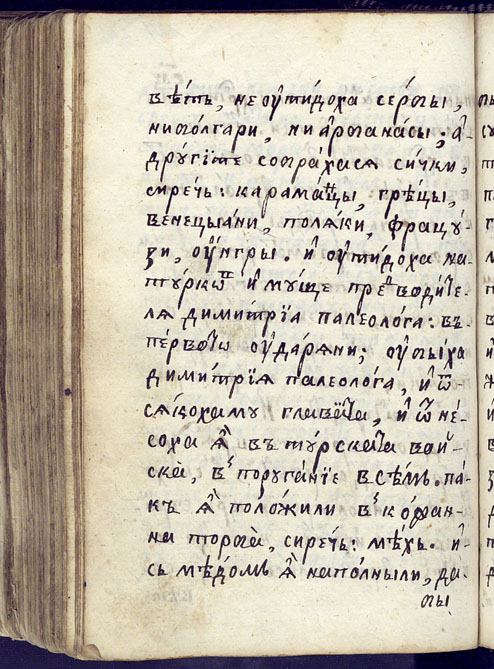 вѣ́тъ, не оу҆ти́доха се́рбы,
ни бо́лгари, ни а҆рбана́сы; а҆-
дрꙋгїте собра́хасѧ си́чки,
сирѣчь: карама́нцы, грѣ́цы,
венецыа́ни, полѧ́ки, фрацꙋ́-
зи, оу҆́нгры. и҆ оу҆ти́доха на-
тꙋ́ркѡⷡ и҆мꙋ́ще преⷣводи́те-
лѧ дими́трїа палеоло́га: въ-
пе́рвото оу҆да́рѧни; оу҆бы́ха
дими́трїѧ палеоло́га, и҆ ѿ-
сѧко́хамꙋ глава́та, и҆ ѿне́-
соха ѧ҆̀ въ тꙋ́рската вой-
ска̀, в̾ порꙋга́нїе всѣ́мъ. па́-
къ ѧ҆̀ поло́жили в̾ ко́жан-
на торба̀, сирѣчь: мѣ́хъ. и҆-
съ мѣ́домъ ѧ҆̀ напо́лныли, да-
бы